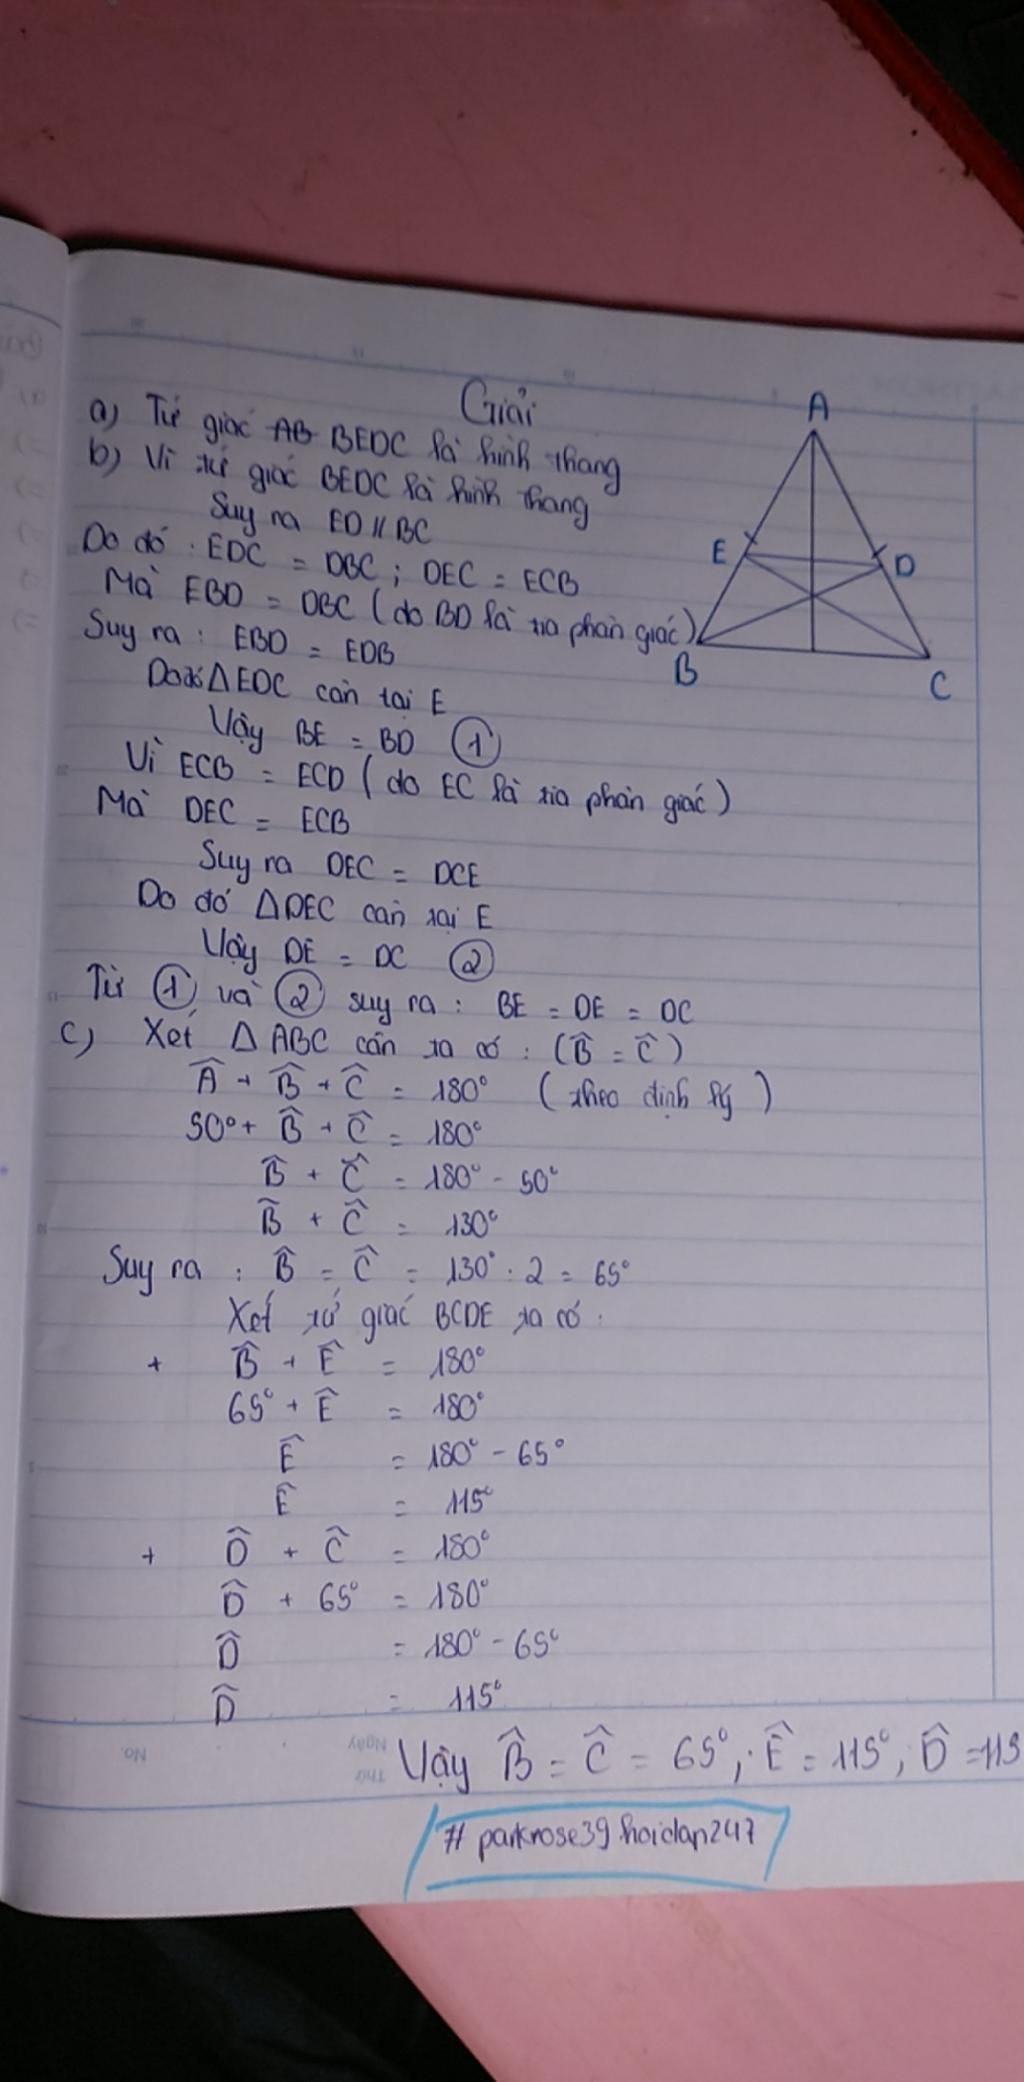 Giải
a) Tứ giác AB BEDC là hình thang
b) Vì tứ giác BEDC là hình thang
Suy ra ED // BC
Do đó : EDC = DBC ; DEC = ECB
Mà EBD = DBC ( do BD là tia phân giác )
Suy ra : EBD = EDB
Do đó ΔEDC cân tại E
Vậy BE = BD ①
Vì ECB = ECD ( do EC là tia phân giác )
Mà DEC = ECB
Suy ra DEC = DCE
Do đó ΔDEC cân tại E
Vậy DE = DC ②
Từ ① và ② suy ra : BE = DE = DC
c) Xét Δ ABC cân ta có : (B̂ = Ĉ )
Â + B̂ + Ĉ = 180° ( theo định lý )
50° + B̂ + Ĉ = 180°
B̂ + Ĉ = 180° - 50°
B̂ + Ĉ = 130°
Suy ra : B̂ = Ĉ = 130° : 2 = 65°
Xét tứ giác BCDE ta có :
+ B̂ + Ê = 180°
65° + Ê = 180°
Ê = 180° - 65°
Ê = 115°
+ D̂ + Ĉ = 180°
D̂ + 65° = 180°
D̂ = 180° - 65°
D̂ = 115°
Vậy B̂ = Ĉ = 65° ; Ê = 115° , D̂ = 115
# parkrose39 hoidap247
A
E
D
B
C
No.
Ngày
Thứ